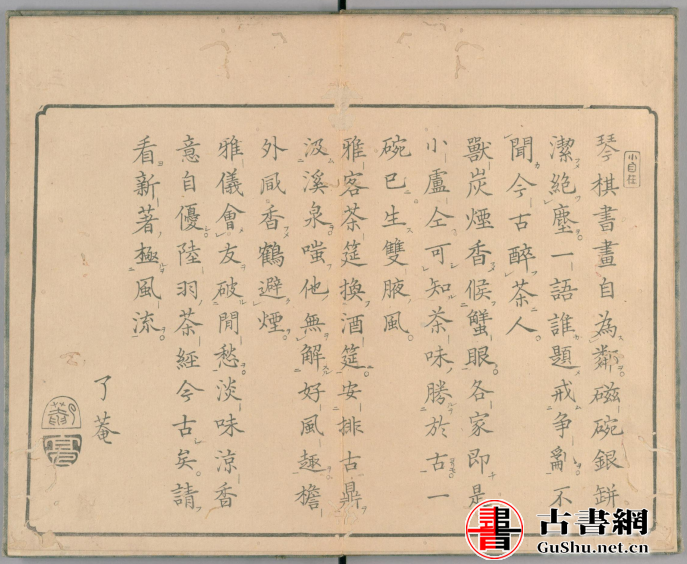 小自在
琴棋書畫自為鄰磁碗銀缾
潔絶塵一語誰題戒爭亂不
聞今古醉茶人
獸炭煙香候蟹眼各家即是
小盧仝可知茶味勝於古一
碗已生雙腋風
雅客茶筵換酒筵安排古鼎
汲溪泉嗤他無解好風趣檐
外凮香鶴避煙
雅儀會友破閒愁淡味涼香
意自優陸羽茶經今古矣請
看新著極風流
了菴
古書網
GuShu.net.cn